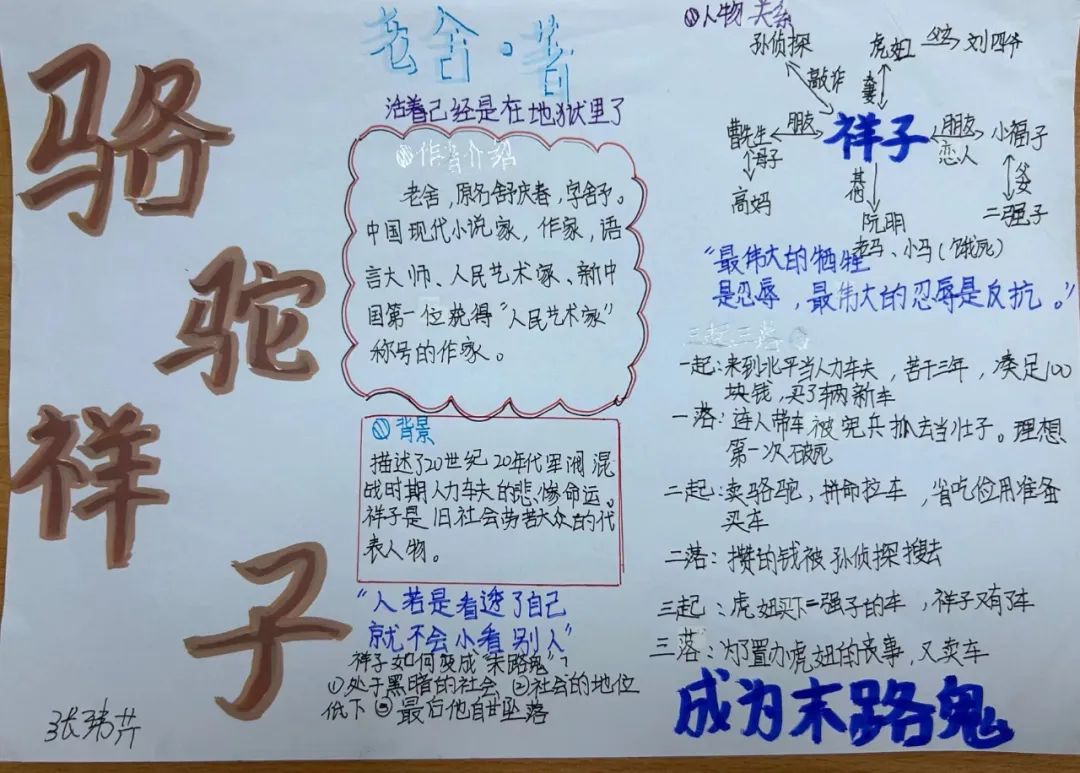 骆驼祥子
老舍·著
活着已经是在地狱里了
作者介绍
老舍，原名舒庆春，字舍予。
中国现代小说家，作家，语
言大师、人民艺术家、新中
国第一位获得“人民艺术家”
称号的作家。
背景
描述了20世纪20年代军阀混
战时期人力车夫的悲惨命运。
祥子是旧社会劳苦大众的代
表人物。
“人若是看透了自己
就不会小看别人”
祥子如何变成“末路鬼”？
①处于黑暗的社会 ②社会的地位
低下 ③最后他自甘坠落
张玮芹
人物关系
孙侦探 虎妞 父女 刘四爷
敲诈 夫妻
曹先生 朋友 祥子 朋友 恋人 小福子
母子 父女
高妈 阮明 二强子
老马、小马（饿死）
“最伟大的牺牲
是忍辱，最伟大的忍辱是反抗。”
三起三落
一起：来到北平当人力车夫，苦干三年，凑足100
块钱，买了车辆新车
一落：连人带车被宪兵抓去当壮子。理想
第一次破死
二起：卖骆驼，拼命拉车，省吃俭用准备
买车
二落：攒的钱被孙侦探搜去
三起：虎妞买下二强子的车，祥子又有了车
三落：为了置办虎妞的丧事，又卖车
成为末路鬼